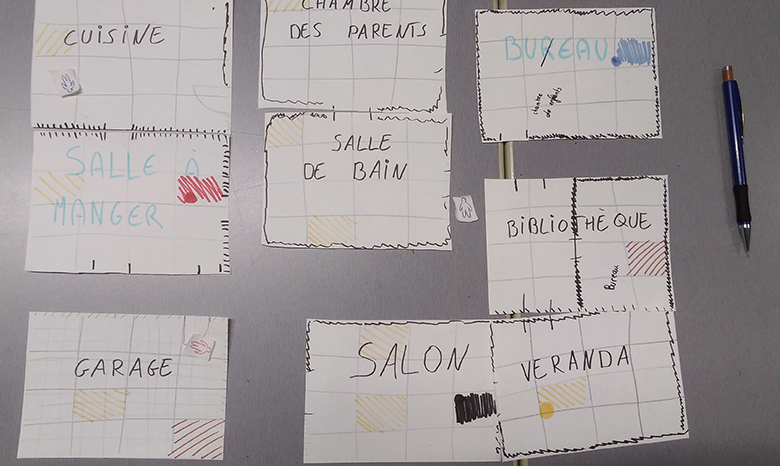 CUISINE
CHAMBRE
DES PARENTS
BUREAU
chambre
de enfants
SALLE À
MANGER
SALLE
DE BAIN
BIBLIOTHÈQUE
Bureau
GARAGE
SALON
VERANDA